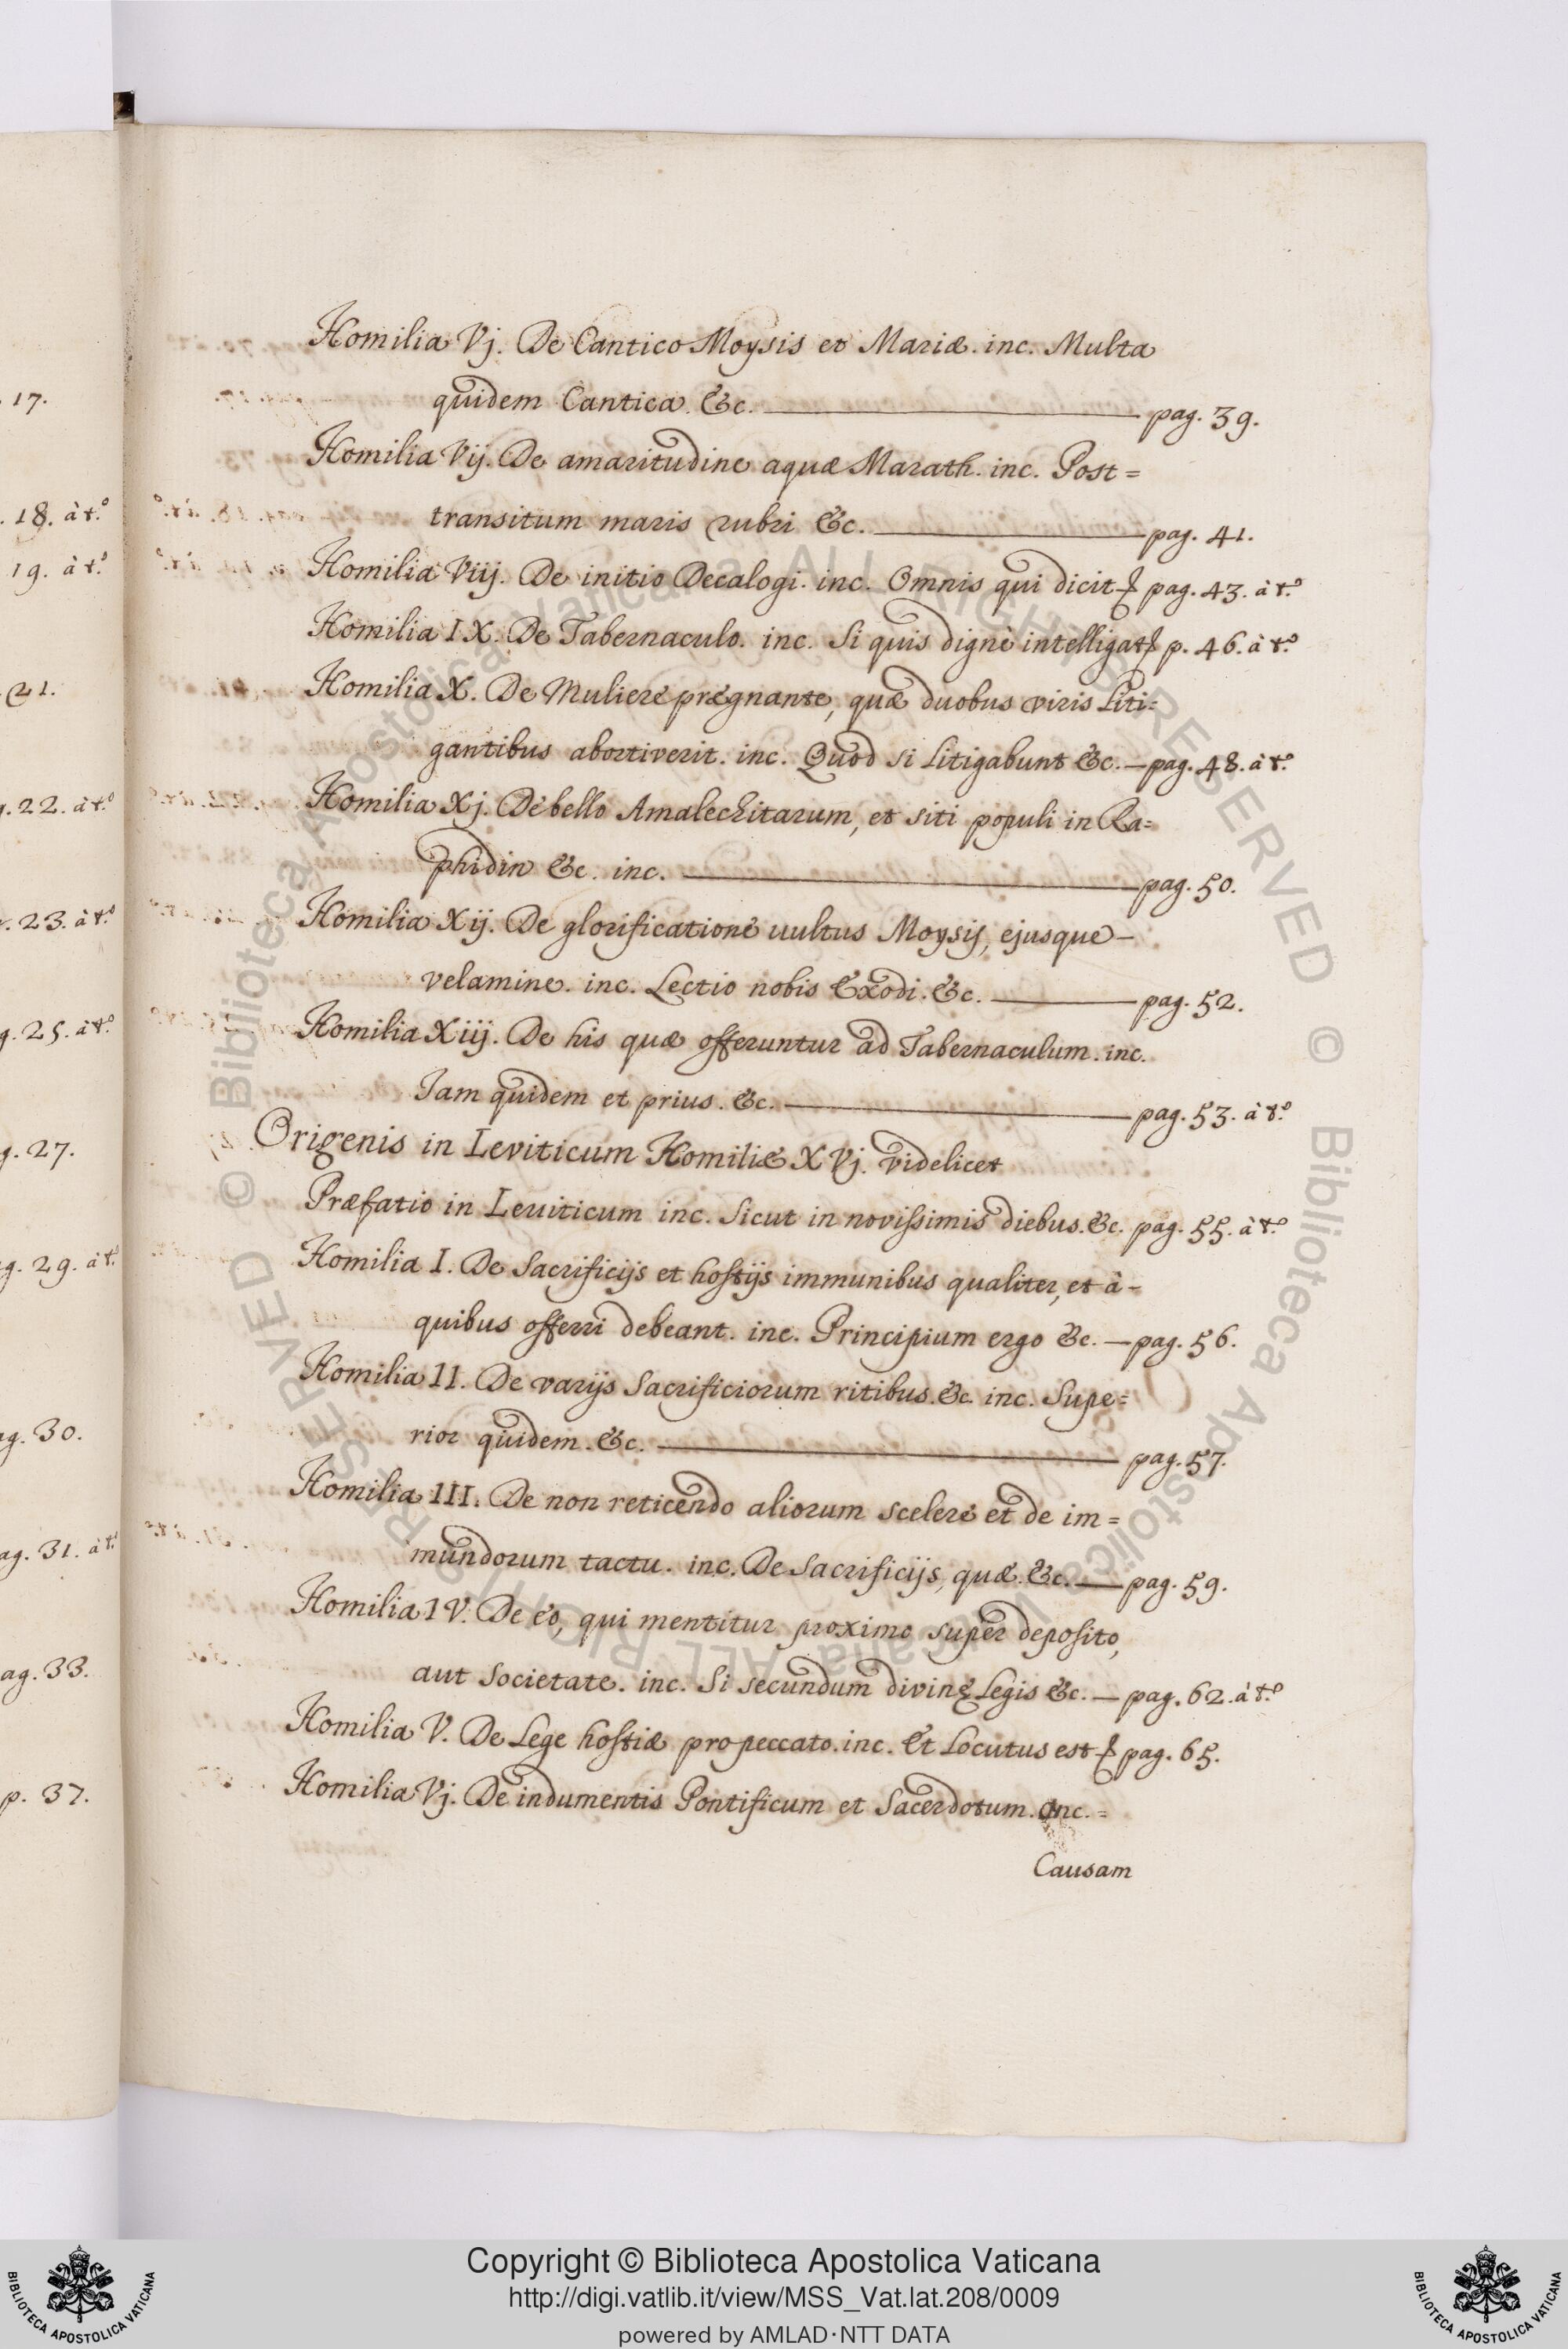 Homilia Vj. De Cantico Moysis et Mariæ. inc. Multa
quidem Cantica. &c. pag. 39.
Homilia Vij. De amaritudine aquæ Marath. inc. Post=
transitum maris rubri &c. pag. 41.
Homilia Viij. De initio Decalogi. inc. Omnis qui dicit pag. 43. à t.º
Homilia IX. De Tabernaculo. inc. Si quis dignè intelligat p. 46. à t.º
Homilia X. De Muliere prægnante, quæ duobus viris Liti=
gantibus abortiverit. inc. Quod si Litigabunt &c. — pag. 48. à t.º
Homilia Xj. De bello Amalechitarum, et siti populi in Ra=
phidin &c. inc. pag. 50.
Homilia Xij. De glorificatione uultus Moysij, ejusque —
velamine. inc. Lectio nobis Exodi. &c. pag. 52.
Homilia Xiij. De his quæ offeruntur ad Tabernaculum. inc.
Jam quidem et prius. &c. pag. 53. à t.º
Origenis in Leviticum Homiliæ XVj. videlicet
Præfatio in Leuiticum inc. Sicut in novissimis diebus. &c. pag. 55. à t.º
Homilia I. De Sacrificijs et hostijs immunibus qualiter, et à -
quibus offerri debeant. inc. Principium ergo &c. — pag. 56.
Homilia II. De varijs Sacrificiorum ritibus. &c. inc. Supe=
rior quidem. &c. pag. 57.
Homilia III. De non reticendo aliorum scelere et de im=
mundorum tactu. inc. De Sacrificijs, quæ. &c. — pag. 59.
Homilia IV. De eo, qui mentitur proximo super deposito,
aut Societate. inc. Si secundum divinę Legis &c. — pag. 62. à t.º
Homilia V. De Lege hostiæ pro peccato. inc. Et Locutus est pag. 65.
Homilia Vj. De indumentis Pontificum et Sacerdotum. inc. =
Causam
17.
18. à t.º
19. à t.º
21.
22. à t.º
23. à t.º
g. 25. à t.º
g. 27.
g. 29. à t.
ag. 30.
ag. 31. à t.
ag. 33.
p. 37.
© Biblioteca Apostolica Vaticana ALL RIGHTS RESERVED
© Biblioteca Apostolica Vaticana ALL RIGHTS RESERVED
Copyright © Biblioteca Apostolica Vaticana
http://digi.vatlib.it/view/MSS_Vat.lat.208/0009
powered by AMLAD·NTT DATA
BIBLIOTECA APOSTOLICA VATICANA
BIBLIOTECA APOSTOLICA VATICANA